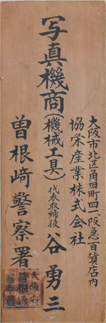 大阪市北区角田町四一阪急百貨店内
協栄産業株式会社
写真機商(機械工具)代表取締役 谷勇三
曽根崎警察署